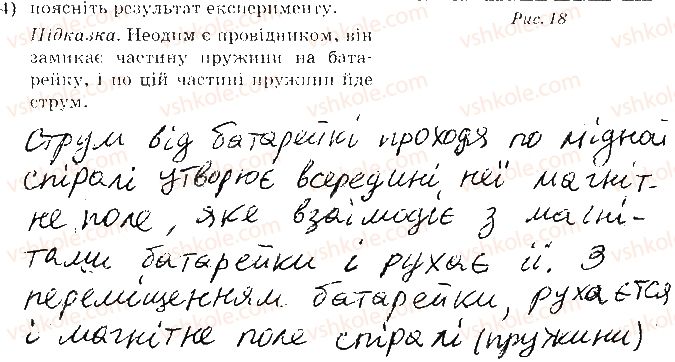 4) поясніть результат експерименту.
Рис. 18
Підказка. Неодим є провідником, він
замикає частину пружини на бата-
рейку, і по цій частині пружини йде
струм.
Струм від батарейкі проходя по мідной
спіралі утворює всередині неї магніт-
не поле, яке взаімодіє з магні-
тами батарейки і рухає її. З
переміщенням батарейки, рухаєтся
і магнітне поле спіралі (пружини)